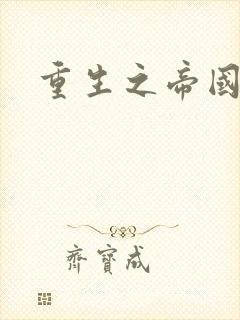 重生之帝國
齊寶成